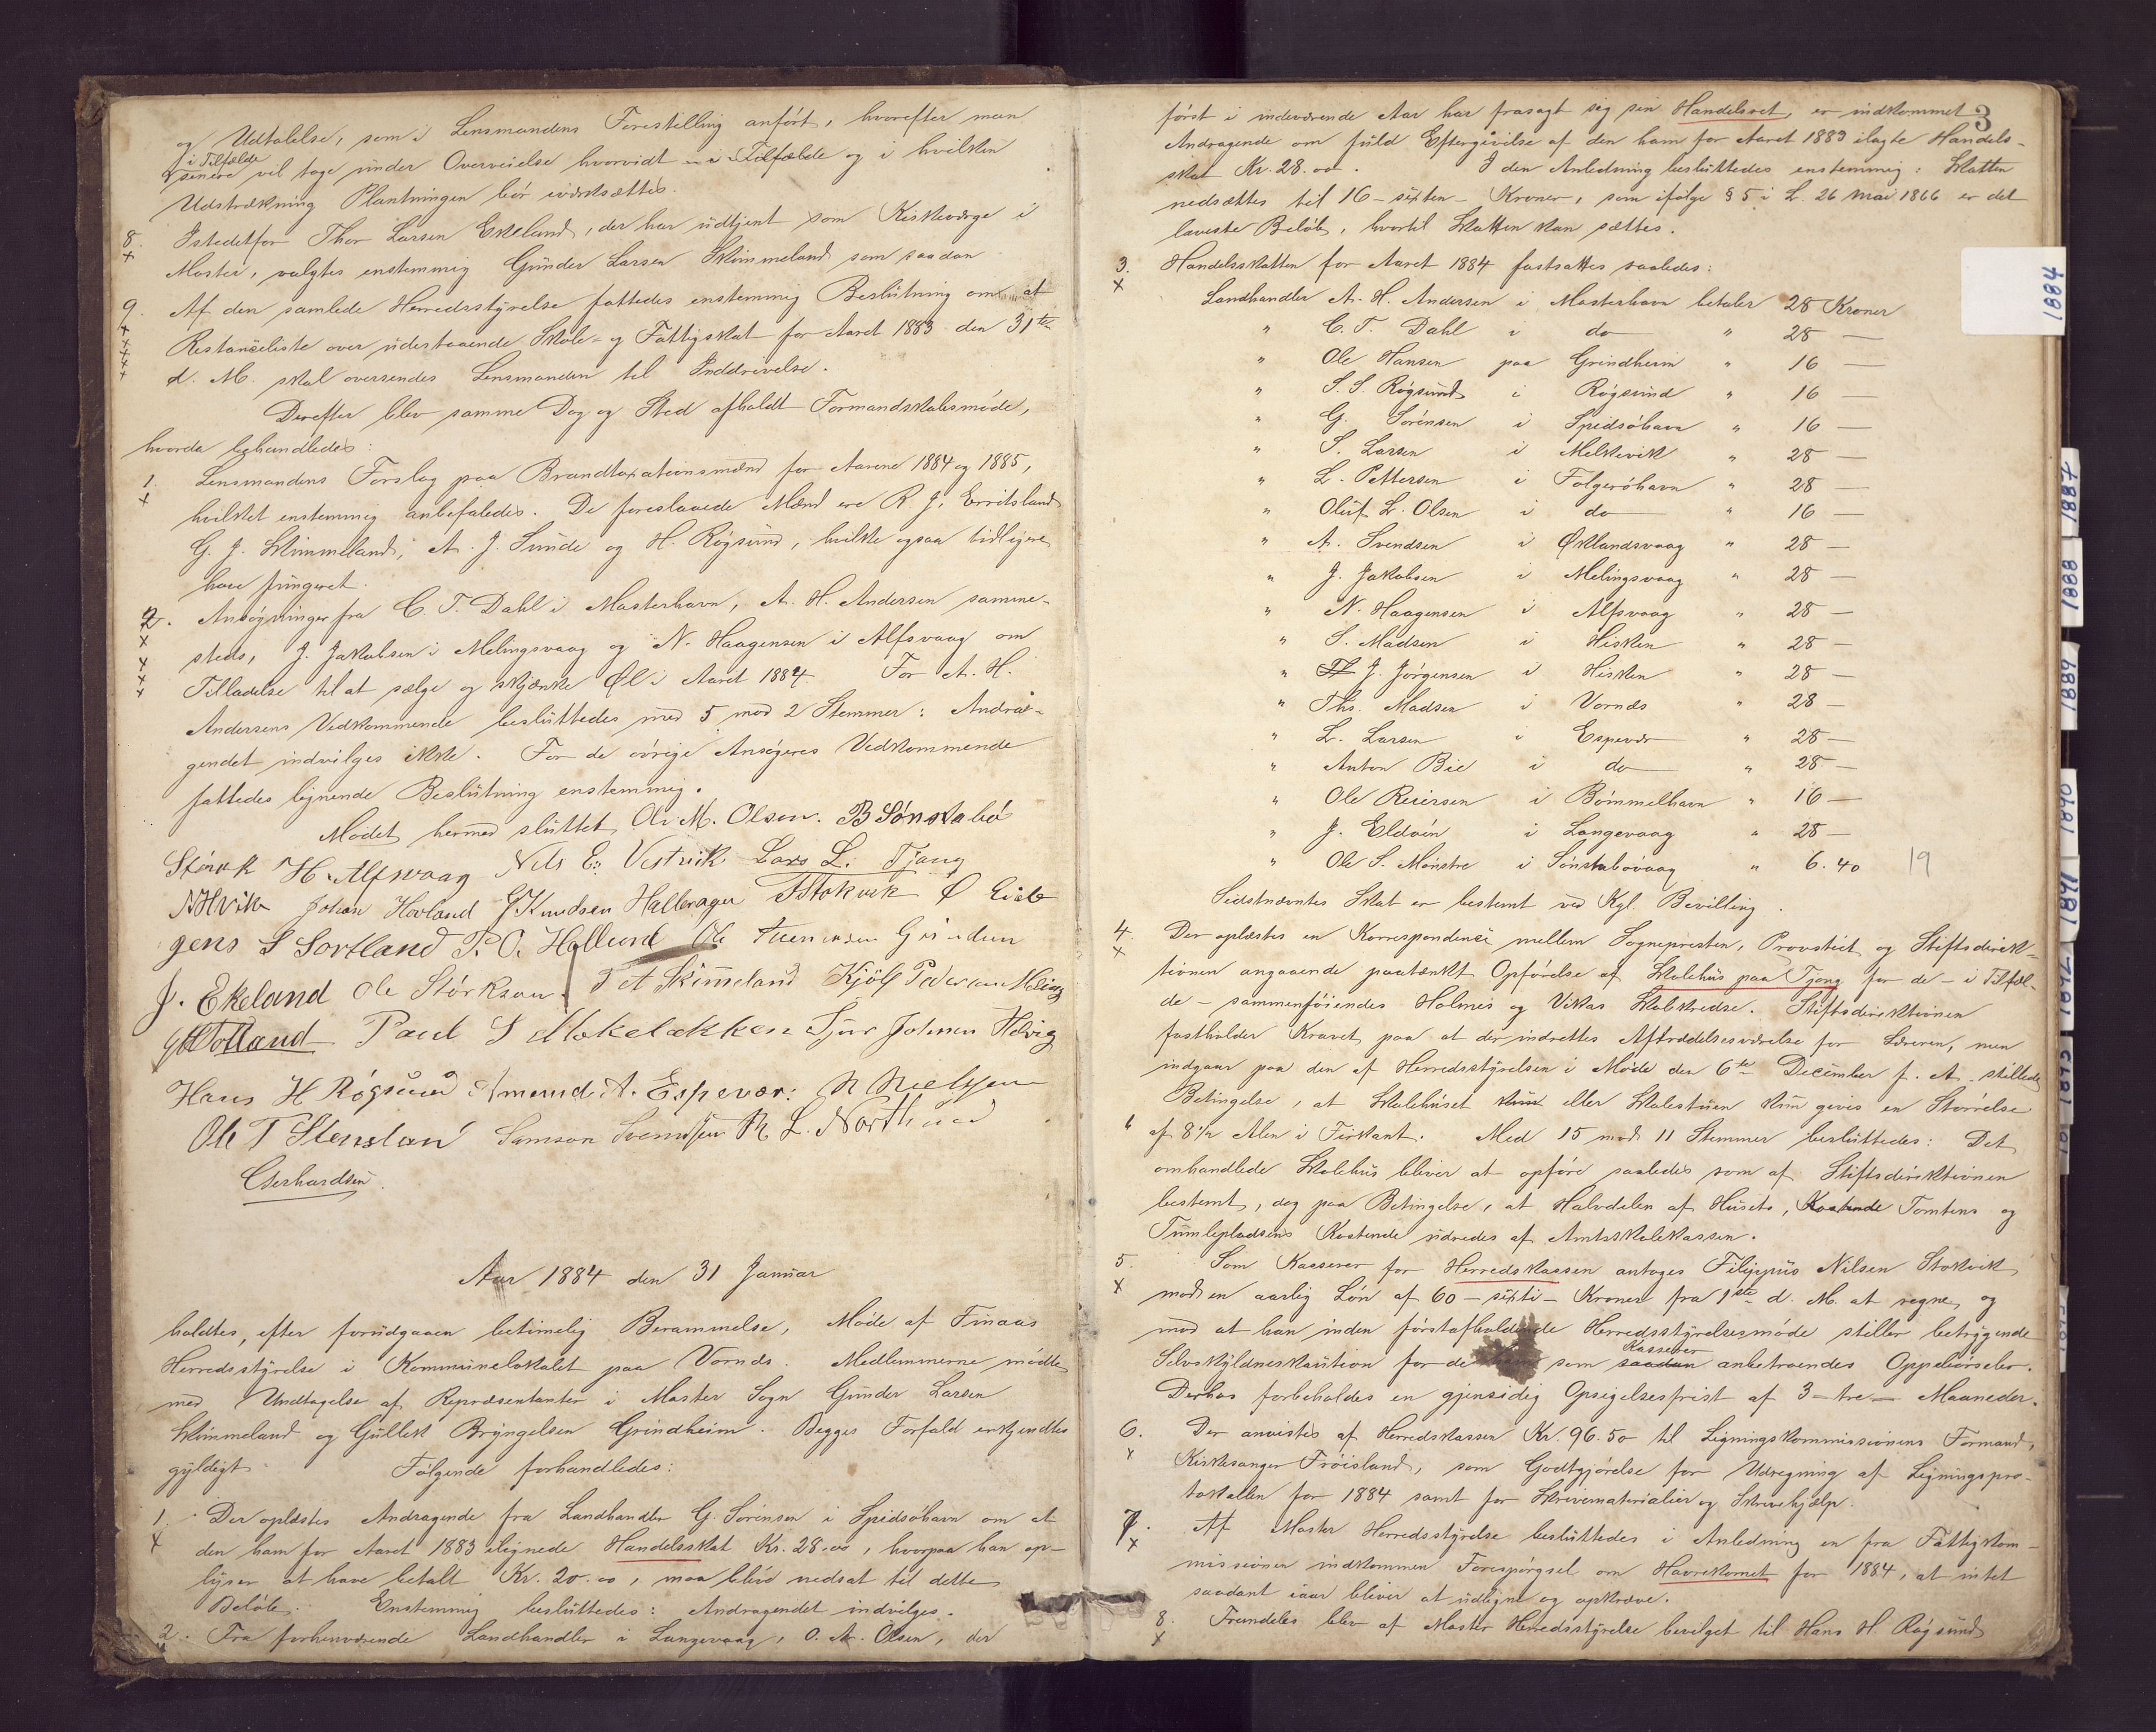 og Udtalelse, som i Lensmandens Forestilling anført, hvorefter man
i Tilfælde
senere vil tage under Overveielse hvorvidt og i hvilken
Udstrækning Plantningen bør iværksættes.
8. Istedetfor Thor Larsen Ekeland, der har udtjent som Kirkeværge i
x Moster, valgtes enstemmig Gunder Larsen Skimmeland som saadan.
9. Af den samlede Herredsstyrelse fattedes enstemmig Beslutning om at
Restanceliste over udestaaende Skole- og Fattigskat for Aaret 1883 den 31te
d. M. skal oversendes Lensmanden til Inddrivelse.
Derefter blev samme Dag og Sted afholdt Formandskabsmøde,
hvorda behandledes:
1. Lensmandens Forslag paa Brandtaxationsmænd for Aarene 1884 og 1885,
x hvilket enstemmig anbefaledes. De foreslaaede Mænd ere R. J. Erritsland
G. J. Skimmeland, A. J. Sunde og H. Røgsund, hvilke ogsaa tidligere
have fungeret.
2. Ansøgninger fra C. T. Dahl i Mosterhavn, A. H. Andersen samme-
steds, J. Jakobsen i Melingsvaag og N. Haagensen i Alfsvaag om
Tilladelse til at sælge og skjænke Øl i Aaret 1884. For A. H.
Andersens Vedkommende besluttedes med 5 mod 2 Stemmer: Andra-
gendet indvilges ikke. For de øvrige Ansøgeres Vedkommende
fattedes lignende Beslutning enstemmig.
Mødet hermed sluttet Ole M. Olsen. B Sønstabø
Størk H. Alfsvaag Nils E. Vestvik Lars L. Tjong
Johan Hovland J Knudsen Hallerager Stokvik
gens S Sortland P. O. Hollund Ole
J. Ekeland Ole Størksen. T A Skimeland Kjøl Pedersen Meling
Totland Paul S Mehelakken Sjur Johnsen Helvig
Hans H Røgsund Amund A. Espevær. N Nielsen
Ole T Stensland Samson Svendsen R. L. Northun
Gerhardsen.
Aar 1884 den 31 Januar
holdtes, efter forudgaaen betimelig Berammelse, Møde af Finaas
Herredsstyrelse i Kommunelokalet paa Vornæs. Medlemmerne mødte
med Undtagelse af Repræsentanter i Moster Sogn Gunder Larsen
Skimmeland og Gullik Bryngelsen Grindheim. Begges Forfald erkjendtes
gyldigt. Følgende forhandledes:
1. Der oplæstes Andragende fra Landhandler G. Sørensen i Spidsøhavn om at
x den ham for Aaret 1883 ilignede Handelsskat Kr. 28.00, hvorpaa han op-
lyser at have betalt Kr. 20.00, maa blive nedsat til dette
Beløb. Enstemmig besluttedes: Andragendet indvilges.
2. Fra forhenværende Landhandler i Langevaag, O. A. Olsen, der
3
først i indeværende Aar har frasagt sig sin Handelsret, er indkommet
Andragende om fuld Eftergivelse af den ham for Aaret 1883 ilagte Handels-
skat Kr. 28.00. I den Anledning besluttedes enstemmig: Skatten
nedsættes til 16 - sexten - Kroner, som ifølge § 5 i L. 26 Mai 1866 er det
laveste Beløb, hvortil Skatten kan sættes.
3. Handelsskatten for Aaret 1884 fastsattes saaledes:
x Landhandler A. H. Andersen i Mosterhavn betaler 28 Kroner
" C. T. Dahl i do " 28 —
" Ole Hansen paa Grindheim " 16 —
" S. S. Røgsund i Røgsund " 16 —
" G. Sørensen i Spidsøhavn " 16 —
" S. Larsen i Melkevik " 28 —
" L. Pettersen i Folgerøhavn " 28 —
" Oluf L. Olsen i do " 16 —
" A. Svendsen i Øklandsvaag " 28 —
" J. Jakobsen i Melingsvaag " 28 —
" N. Haagensen i Alfsvaag " 28 —
" S. Madsen i Hisken " 28 —
" J. Jørgensen i Hisken " 28 —
" Ths. Madsen i Vornæs " 28 —
" L. Larsen i Espevær " 28 —
" Anton Bie i do " 28 —
" Ole Reiersen i Bømmelhavn " 16 —
" J. Eldøen i Langevaag " 28 —
" Ole S. Mønstre i Sønstabøvaag " 6.40 19
Sidstnævntes Skat er bestemt ved Kgl. Bevilling.
4. Der oplæstes en Korrespondence mellem Sognepresten, Provstiet og Stiftsdirek-
x tionen angaaende paatænkt Opførelse af Skolehus paa Tjong for de - i Tilfæl-
de - sammenføiendes Holmes og Vikas Skolekredse. Stiftsdirektionen
fastholder Kravet paa at der indrettes Aftrædelsesværelse for Læreren, men
indgaar paa den af Herredsstyrelsen i Møde den 6te December f. A. stillede
Betingelse, at Skolehuset eller Skolestuen kun gives en Størrelse
af 8½ Alen i Firkant. Med 15 mod 11 Stemmer besluttedes: Det
omhandlede Skolehus bliver at opføre saaledes som af Stiftsdirektionen
bestemt, dog paa Betingelse, at Halvdelen af Husets, Kostende Tomtens og
Tumlepladsens Kostende udredes af Amtsskolekassen.
5. Som Kasserer for Herredskassen antoges Filippus Nilsen Stokvik
x mod en aarlig Løn af 60 - sexti - Kroner fra 1ste d. M. at regne, og
mod at han inden førstafholdende Herredsstyrelsesmøde stiller betryggende
Kasserer
Selvskyldnerkaution for de som saadan anbetroendes Oppebørseler.
Derhos forbeholdes en gjensidig Opsigelsesfrist af 3 - tre - Maaneder.
6. Der anvistes af Herredskassen Kr. 96.50 til Ligningskommissionens Formand,
x Kirkesanger Frøisland, som Godtgjørelse for Udregning af Ligningspro-
tokollen for 1884 samt for Skrivematerialier og Skrivehjælp.
7. Af Moster Herredsstyrelse besluttedes i Anledning en fra Fattigkom-
x missionen indkommen Forespørgsel om Havrekornet for 1884, at intet
saadant iaar bliver at udligne og opkræve.
8. Fremdeles blev af Moster Herredsstyrelse bevilget til Hans H. Røgsund
x
1884
1887
1888
1889
1890
1891
1892